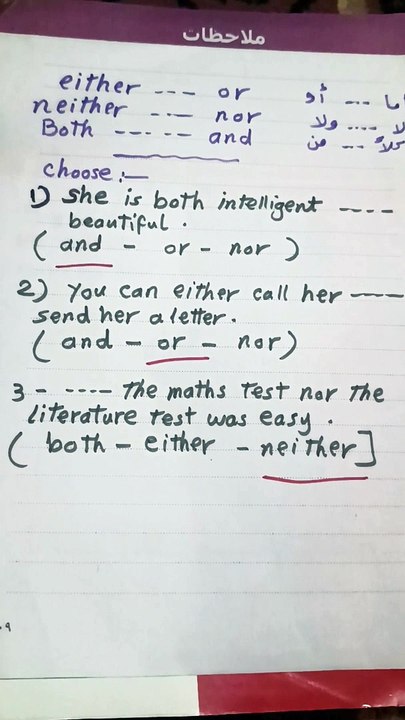 ملاحظات
either --- or اما --- أو
neither --- nor لا ---- ولا
Both ---- and كلاً --- من
choose :-
1) she is both intelligent ----
beautiful .
( and - or - nor )
2) You can either call her ----
send her a letter .
( and - or - nor )
3 - ---- The maths Test nor The
literature Test was easy .
( both - either - neither ]